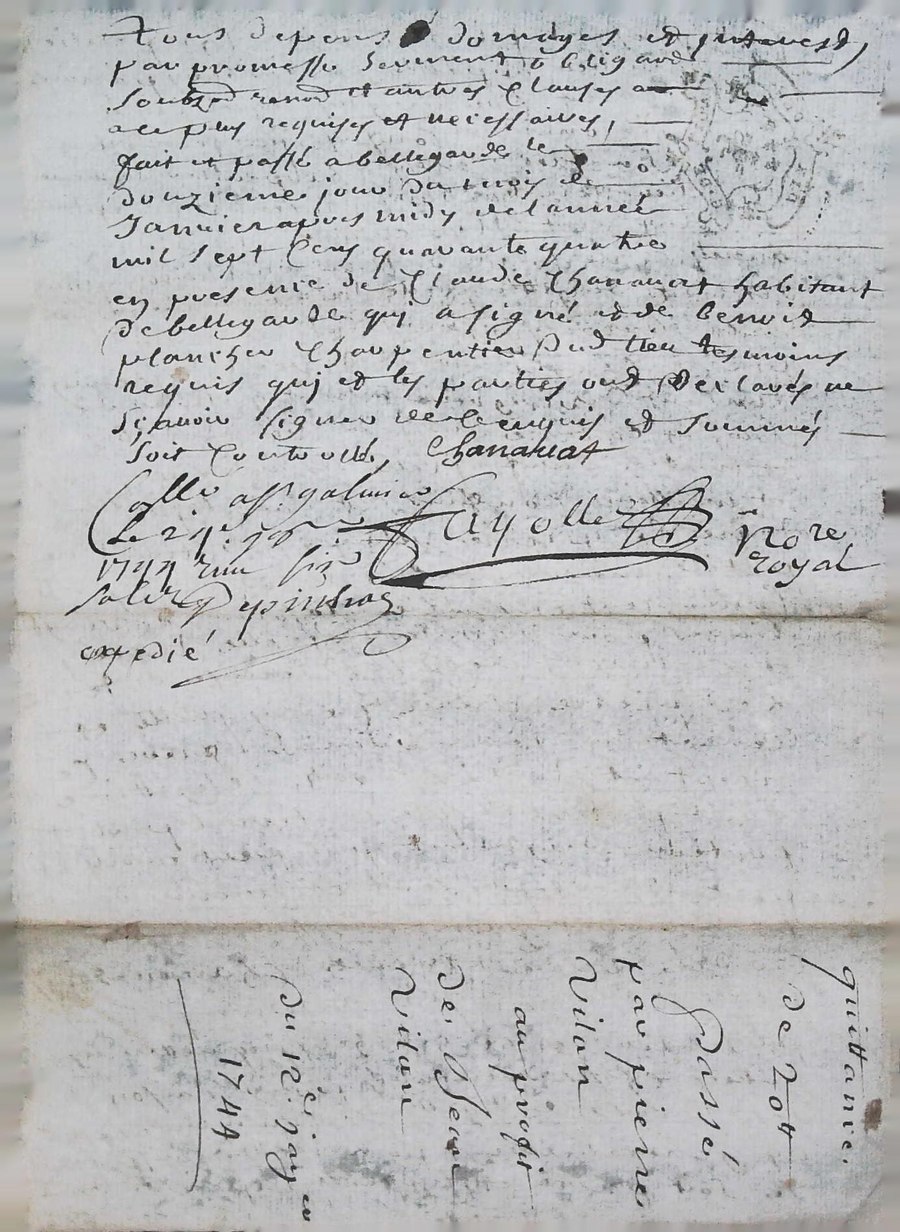 Tous depens domages et interest,
par promesse serment obligaon
soubz ren et autres Clauses
a ce plus requises et necessaires,
fait et passé a bellegarde le
douzieme jour du mois de
Janvier apres midy de l'année
mil sept Cens quarante quatre
en presence de Claude Chanavat habitant
de bellegarde qui a signé et de benoit
plancher Charpentier dud lieu tesmoins
requis qui et les parties ont declarés ne
sçavoir signer de ce enquis et sommés
soit Controllé, Chanavat
Collé a St galmier
le 24e
1744 six
Fayolle
Nore
royal
expedié
quittance
de 20tt
passé
par pierre
Vilan
au profit
de Jean
Vilan
du 12e janver
1744